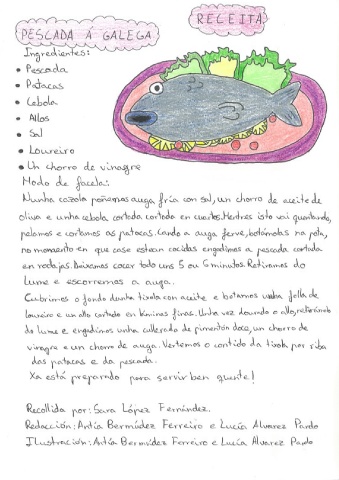 RECEITA
PESCADA A GALEGA
Ingredientes:
• Pescada
• Patacas
• Cebola
• Allos
• Sal
• Loureiro
• Un chorro de vinagre
Modo de facela:
Nunha cazola poñemos auga fría con sal, un chorro de aceite de
oliva e unha cebola cortada cortada en cuartos. Mentres isto vai quentando,
pelamos e cortamos as patacas. Cando a auga ferve, botámolas na pota,
no momento en que case estean cocidas engadimos a pescada cortada
en rodajas. Deixamos cocer todo uns 5 ou 6 minutos. Retiramos do
lume e escorremos a auga.
Cubrimos o fondo dunha tixola con aceite e botamos unha folla de
loureiro e un allo cortado en láminas finas. Unha vez dourado o allo, retirámolo
do lume e engadimos unha cullerada de pimentón doce, un chorro de
vinagre e un chorro de auga. Vertemos o contido da tixola por riba
das patacas e da pescada.
Xa está preparado para servir ben quente!
Recollida por: Sara López Fernández.
Redacción: Antía Bermúdez Ferreiro e Lucía Alvarez Pardo
Ilustración: Antía Bermúdez Ferreiro e Lucía Alvarez Pardo